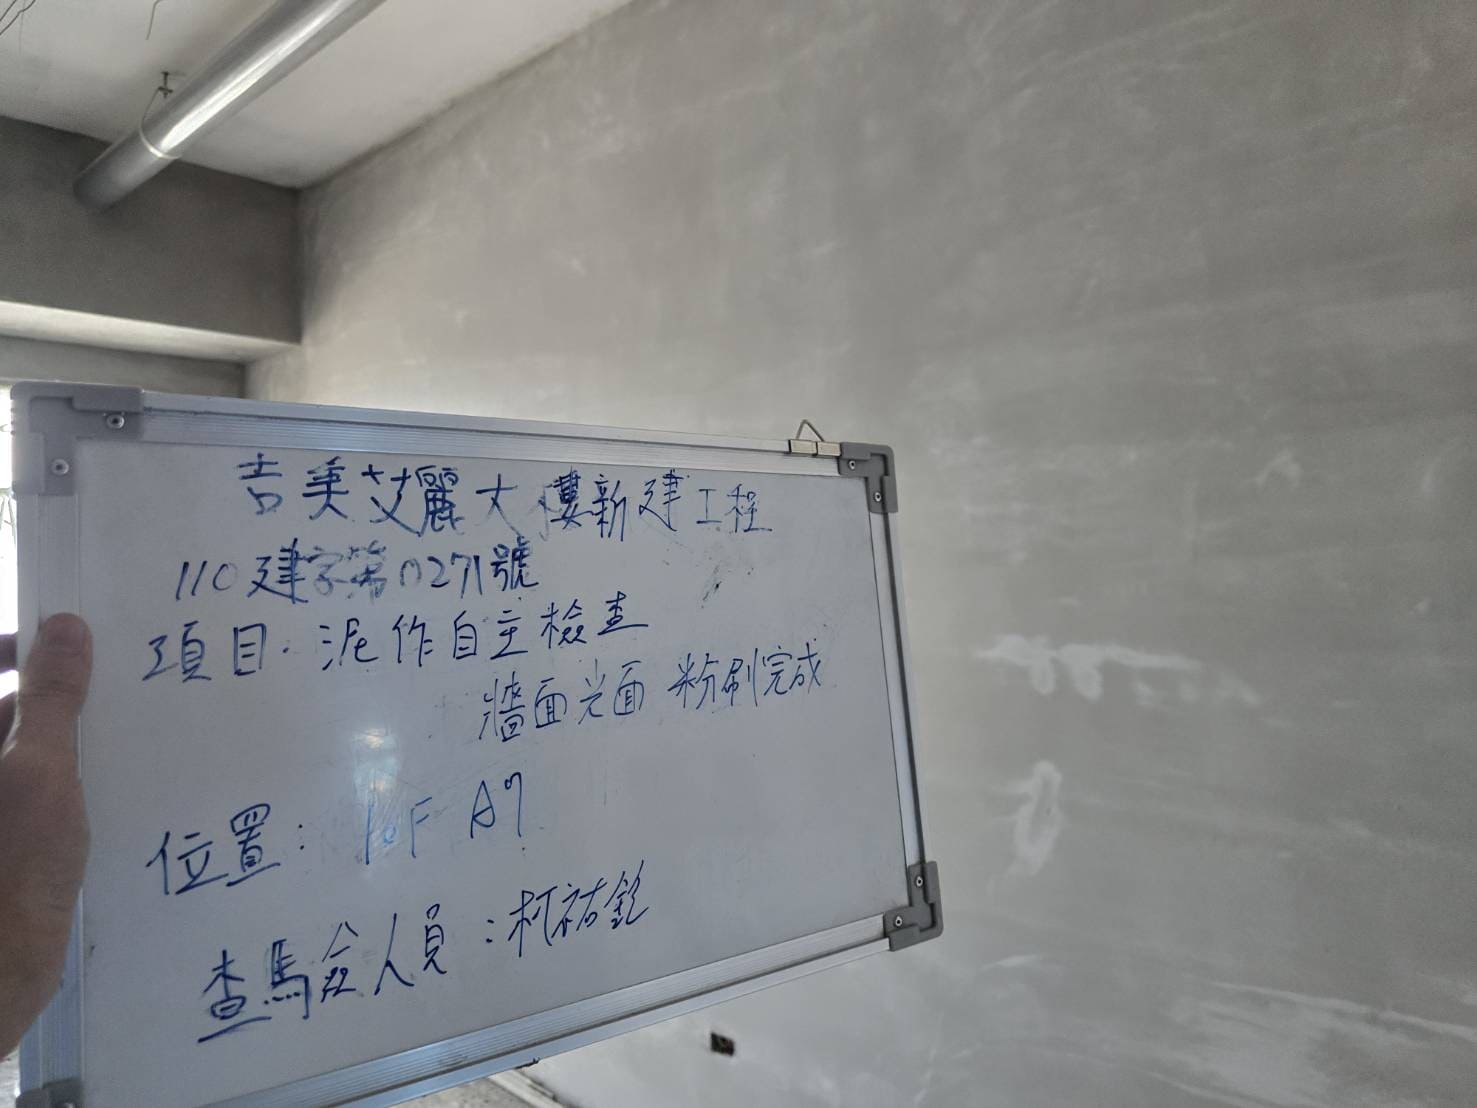 吉美艾麗大樓新建工程
110建字第0271號
項目:泥作自主檢查
牆面光面粉刷完成
位置: 10F A7
查驗人員:柯祐鈞